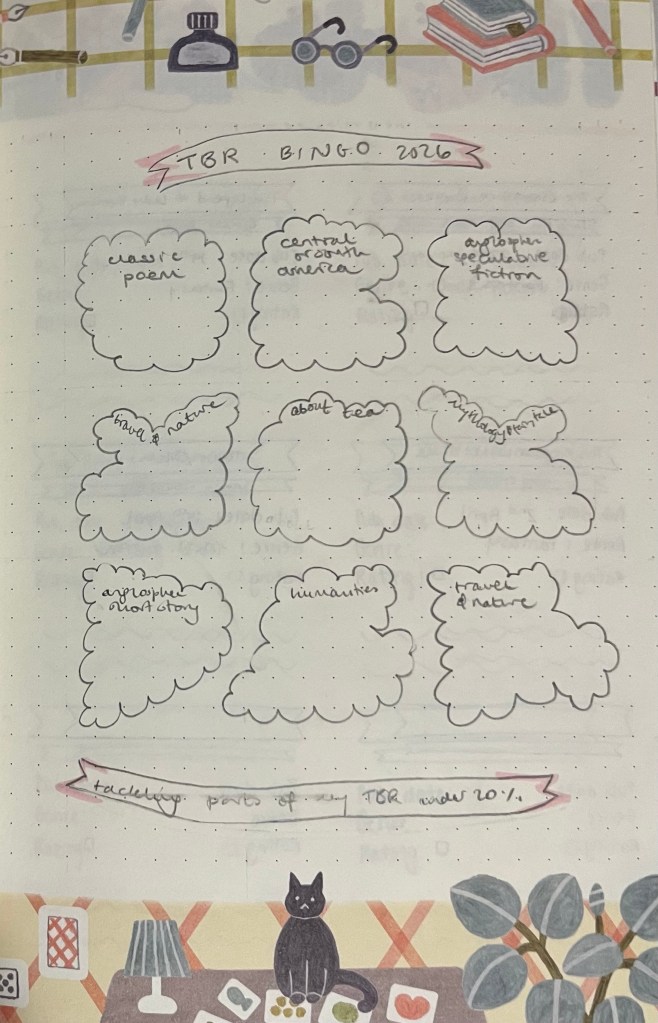 TBR BINGO 2026
classic
poem
central
or south
america
anglosphere
speculative
fiction
travel & nature
about tea
mythology & fairy tale
anglosphere
short story
humanities
travel
& nature
tackling parts of my TBR under 20%